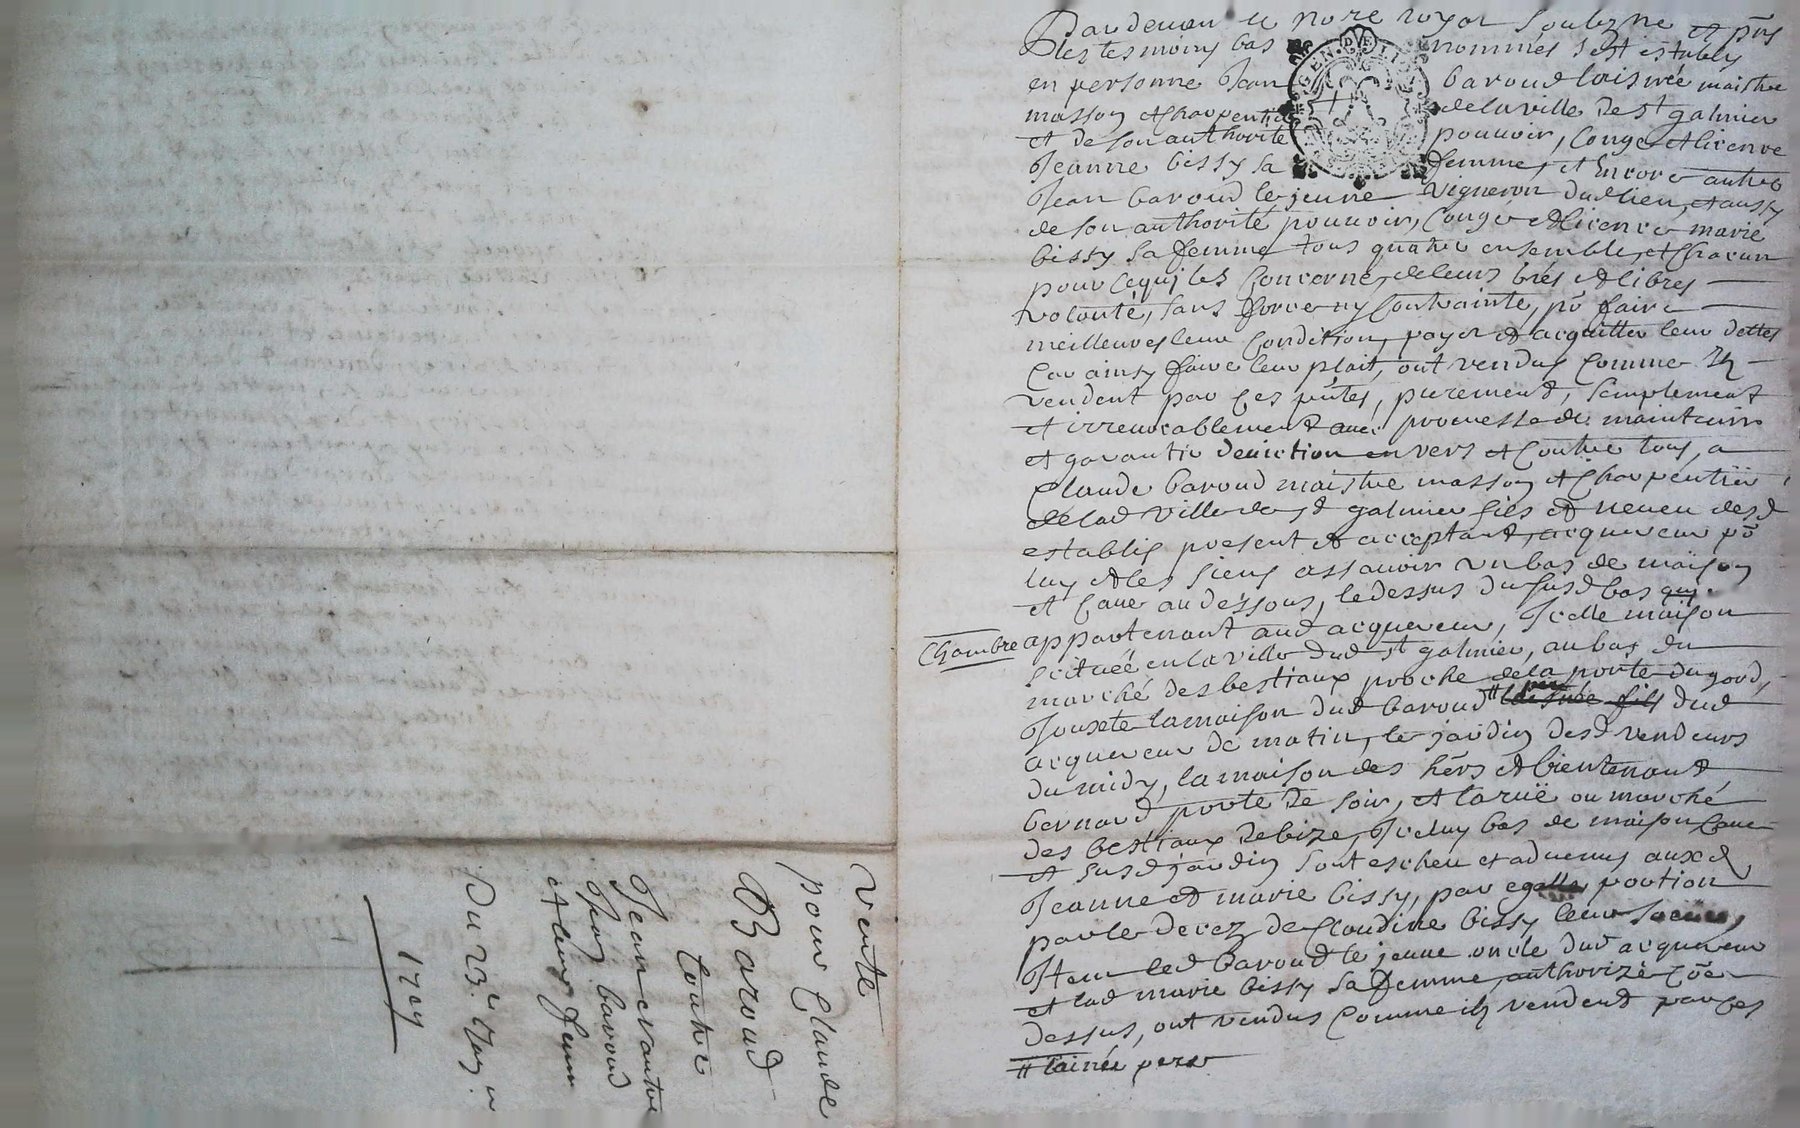 Pardevan le nore royal soubzne et pns
les tesmoins bas nommés s'est estably
en personne Jean baroud laisnée maistre
masson et charpentier de la ville de st galmier
et de son authorité pouvoir, congé et licence
Jeanne bissy sa femme, et encore autre
Jean baroud le jeune vigneron dud lieu, et aussy
de son authorité pouvoir, congé et licence marie
bissy sa femme tous quatre ensemble, et chacun
pour ce qui les concerne, de leurs grés et libres
volonté, sans force ny contrainte, po faire
meilleures leur condition, payer et acquitter leur dettes
car ainsy faire leur plait, ont vendus comme ils
vendent par ces pntes, purement, simplement
et irrevocablement avec promesse de maintenir
et garantir deviction envers et contre tous, a
Claude baroud maistre masson et charpentier
de lad ville de st galmier fils et neveu desd
establis present et acceptant, acquereur po
luy et les siens assavoir un bas de maison
et cave au dessous, le dessus du susd bas
chambre appartenant aud acquereur, Icelle maison
scituée en la ville dud st galmier, au bas du
marché des bestiaux proche de la porte du gord,
Jouxte la maison dud baroud # dud
acquereur de matin, le jardin desd vendeurs
du midy, la maison des hers et bientenant
bernard porte de soir, et la ruë ou marché
des bestiaux de bize, Iceluy bas de maison cave
et susd jardin sont escheu et advenus auxd
Jeanne et marie bissy, par egalle portion
par le decez de Claudine bissy leur soeur,
Item led baroud le jeune oncle dud acquereur
et lad marie bissy sa femme, authorizé coe
dessus, ont vendus comme ils vendent par ces
# lainée pere
vente
pour Claude
Baroud
contre
Jean et autre
Jean baroud
et leur femm
Du 23e may
1709